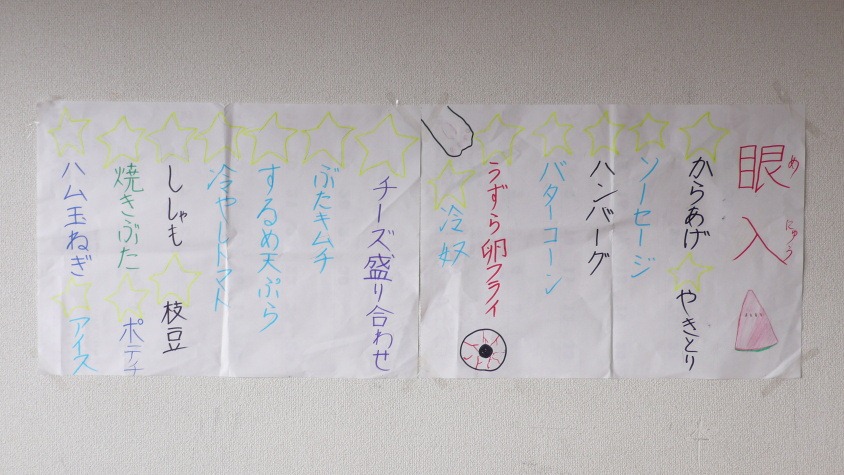 眼入
めにゅう
からあげ
やきとり
ソーセージ
ハンバーグ
バターコーン
うずら卵フライ
冷奴
チーズ盛り合わせ
ぶたキムチ
するめ天ぷら
冷やしトマト
ししゃも
枝豆
焼きぶた
ポテチ
ハム玉ねぎ
アイス